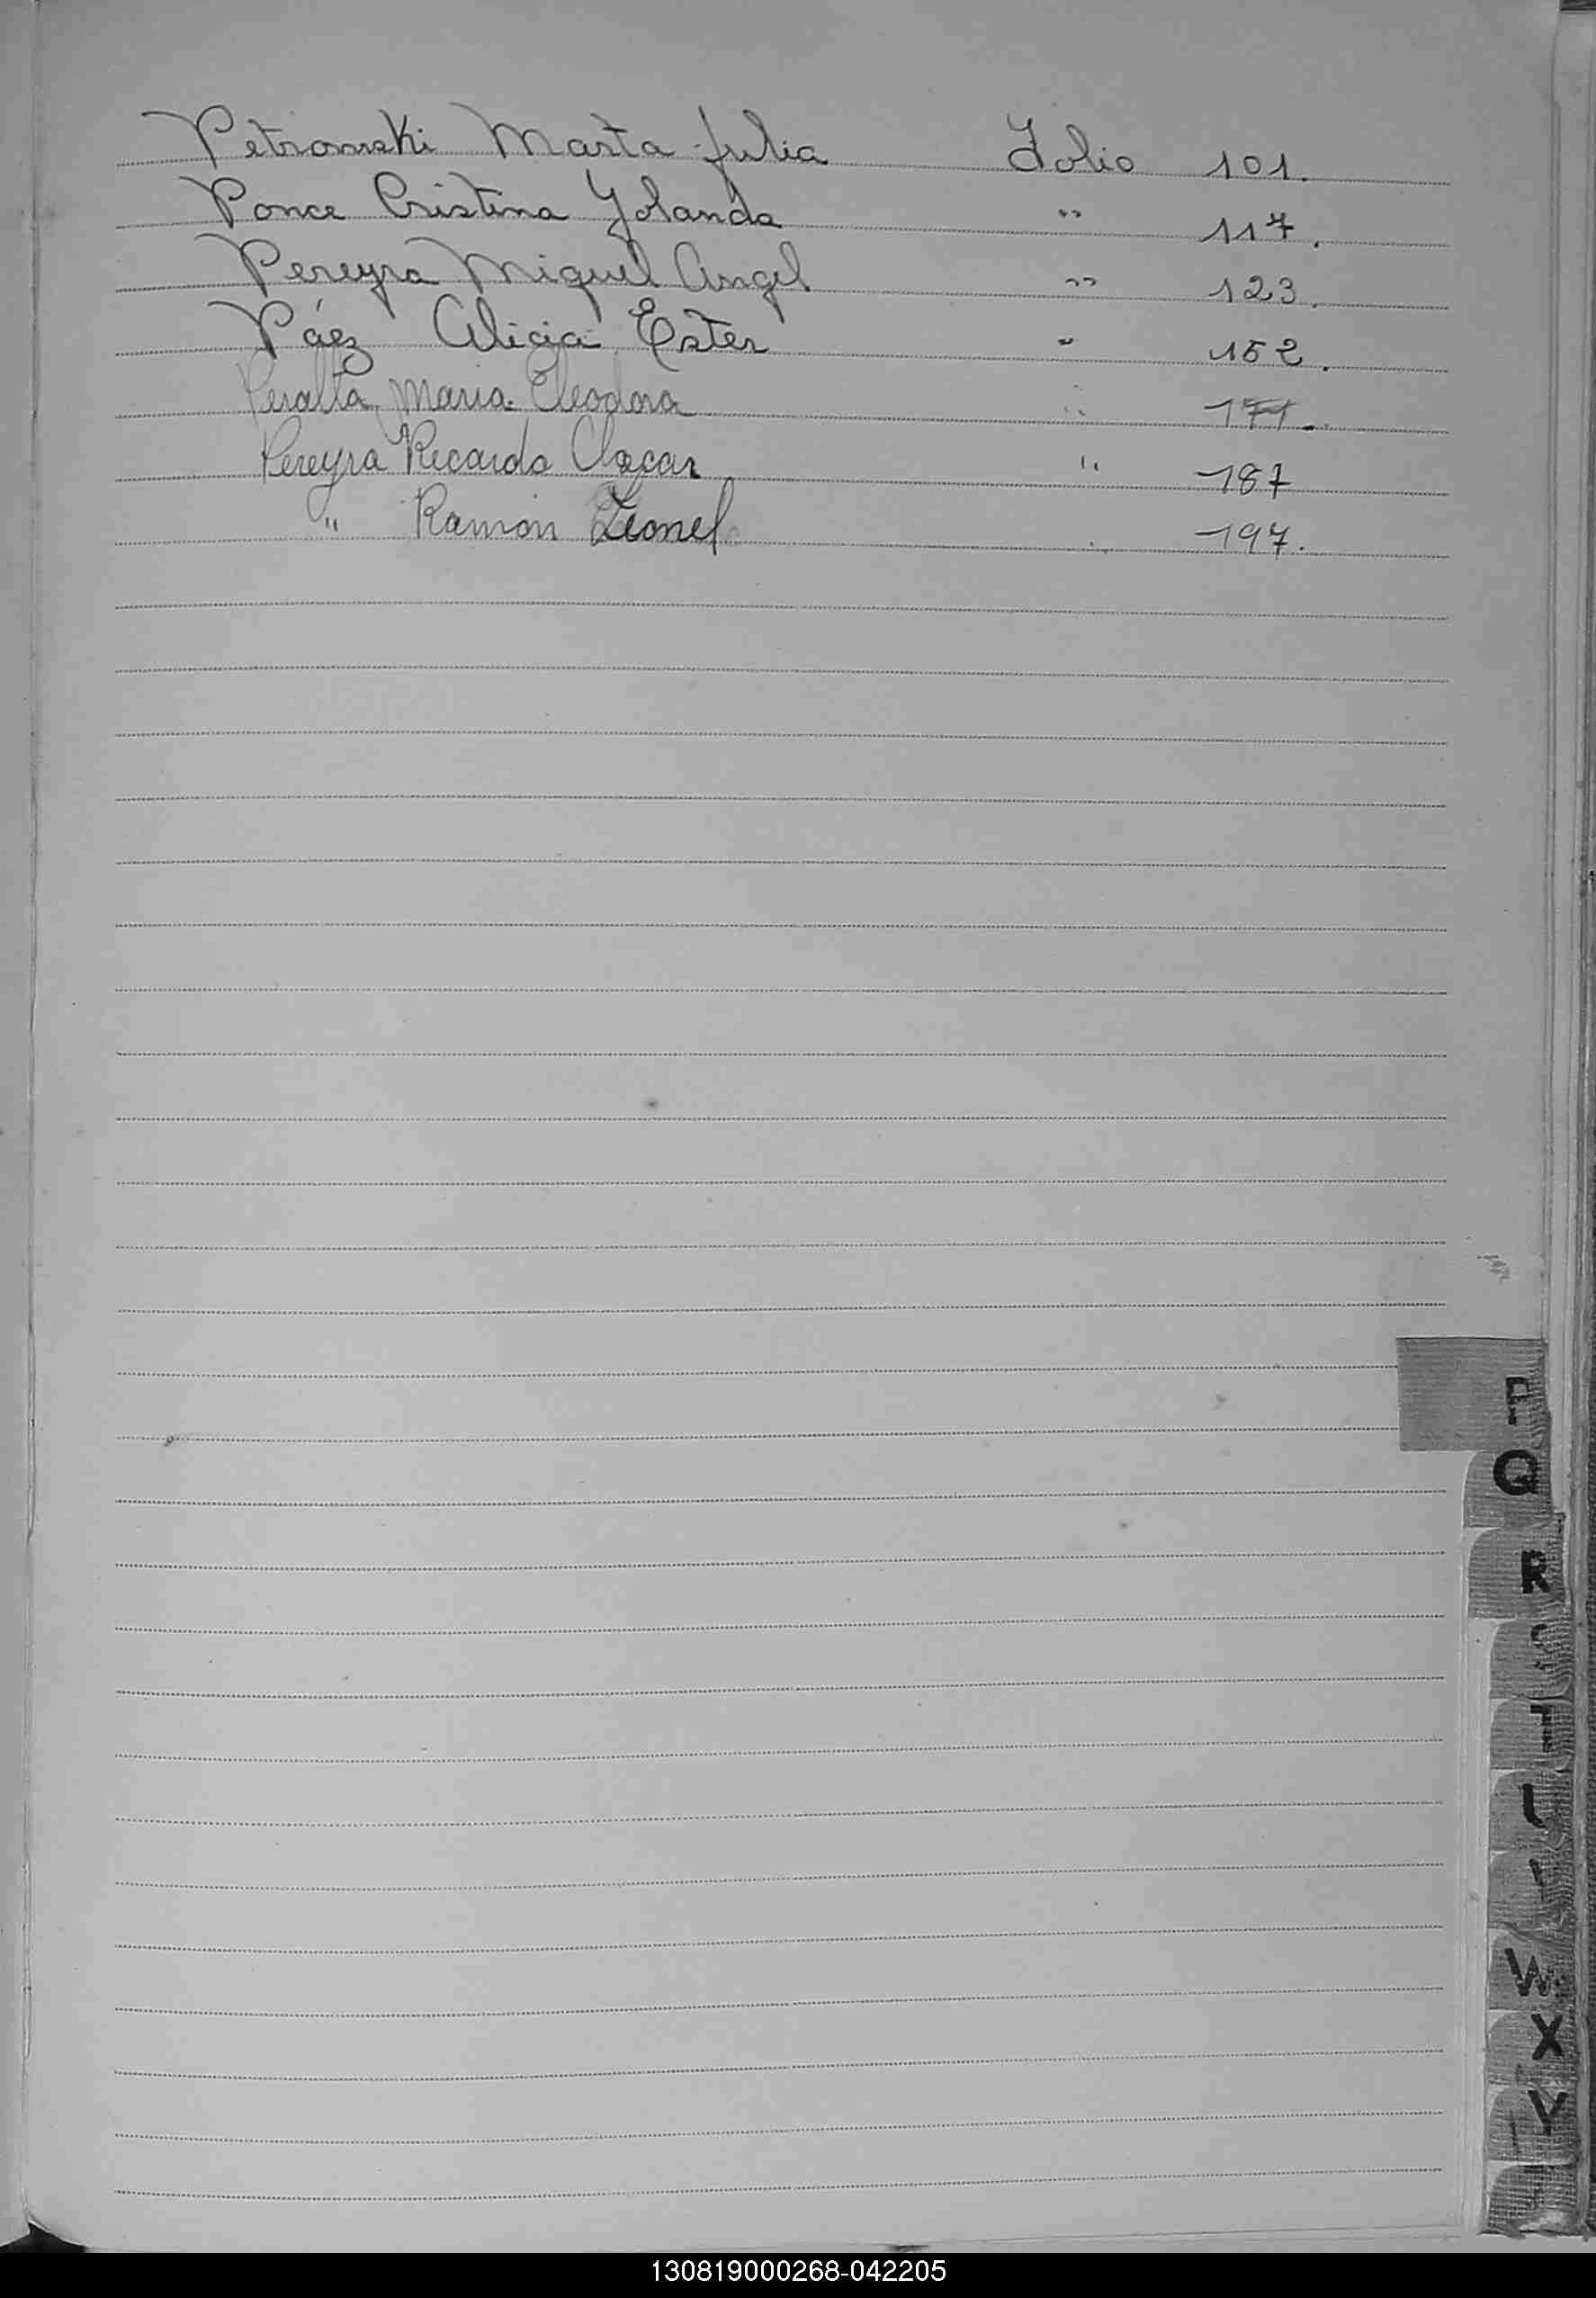 Petrowski Marta Julia Folio 101.
Ponce Cristina Yolanda " 117.
Pereyra Miguel Angel " 123.
Páez Alicia Ester " 152.
Peralta, Maria Eleodora " 171.
Pereyra Ricardo " 187
" Ramón Leonel " 197.
P
Q
R
W
X
Y
130819000268-042205